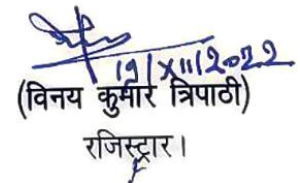 19/XII/2022
(विनय कुमार त्रिपाठी)
रजिस्ट्रार।